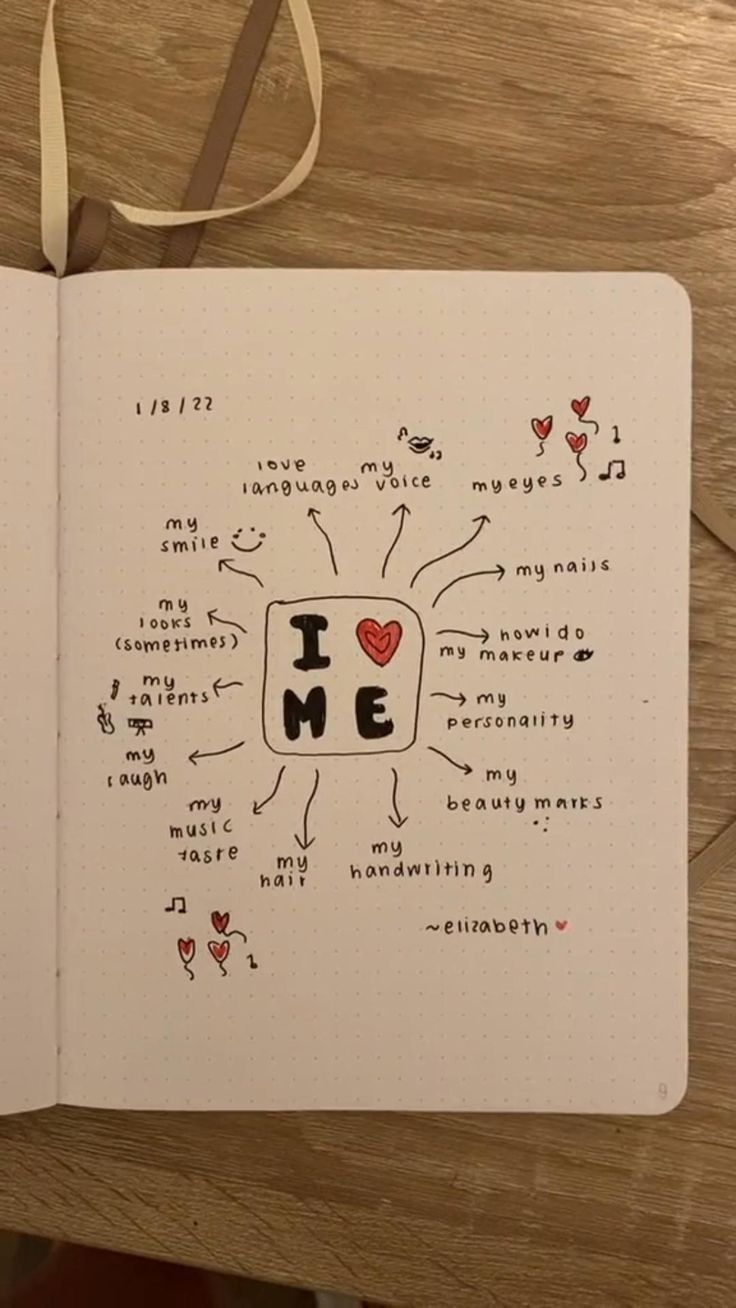 1/8/22
love
languages
my
voice
my eyes
my
smile
my nails
my
looks
(sometimes)
how i do
my makeup
my
talents
my
personality
my
laugh
my
beauty marks
my
music
taste
my
hair
my
handwriting
I ❤ 
ME
~elizabeth ♥
9